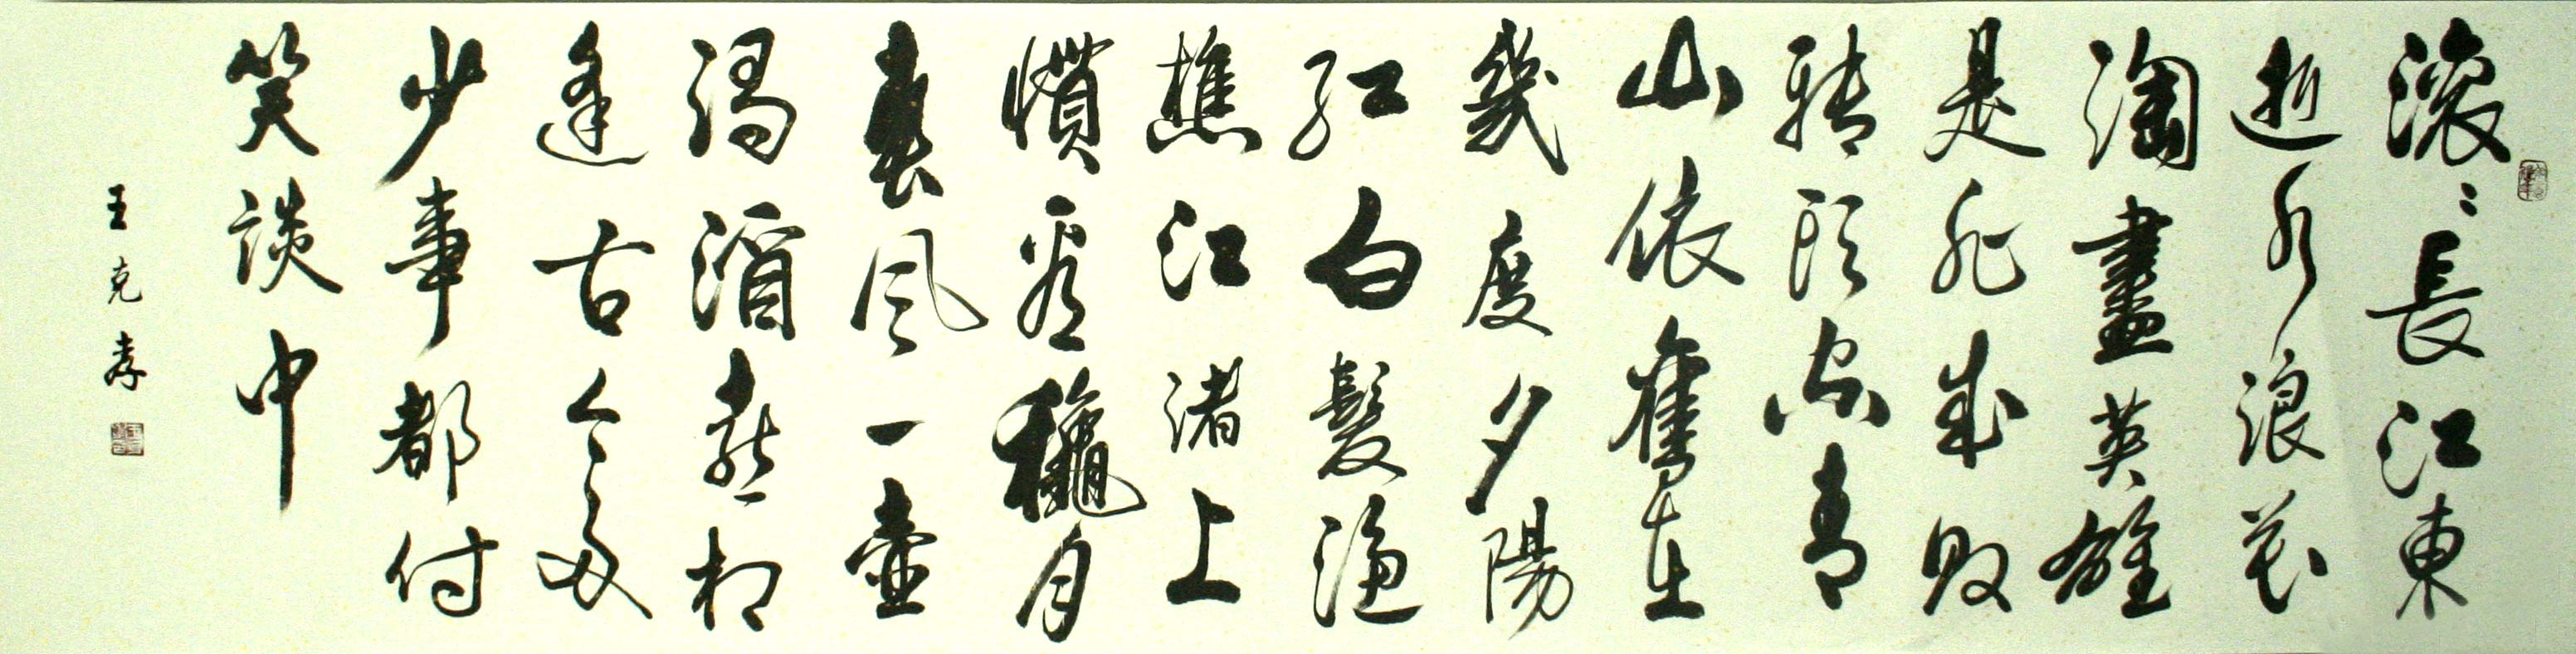 滚〻長江東
逝水浪花
淘盡英雄
是非成敗
轉頭空青
山依舊在
幾度夕陽
紅白髮漁
樵江渚上
慣看龝月
春風一壺
濁酒喜相
逢古今多
少事都付
笑談中
王克孝